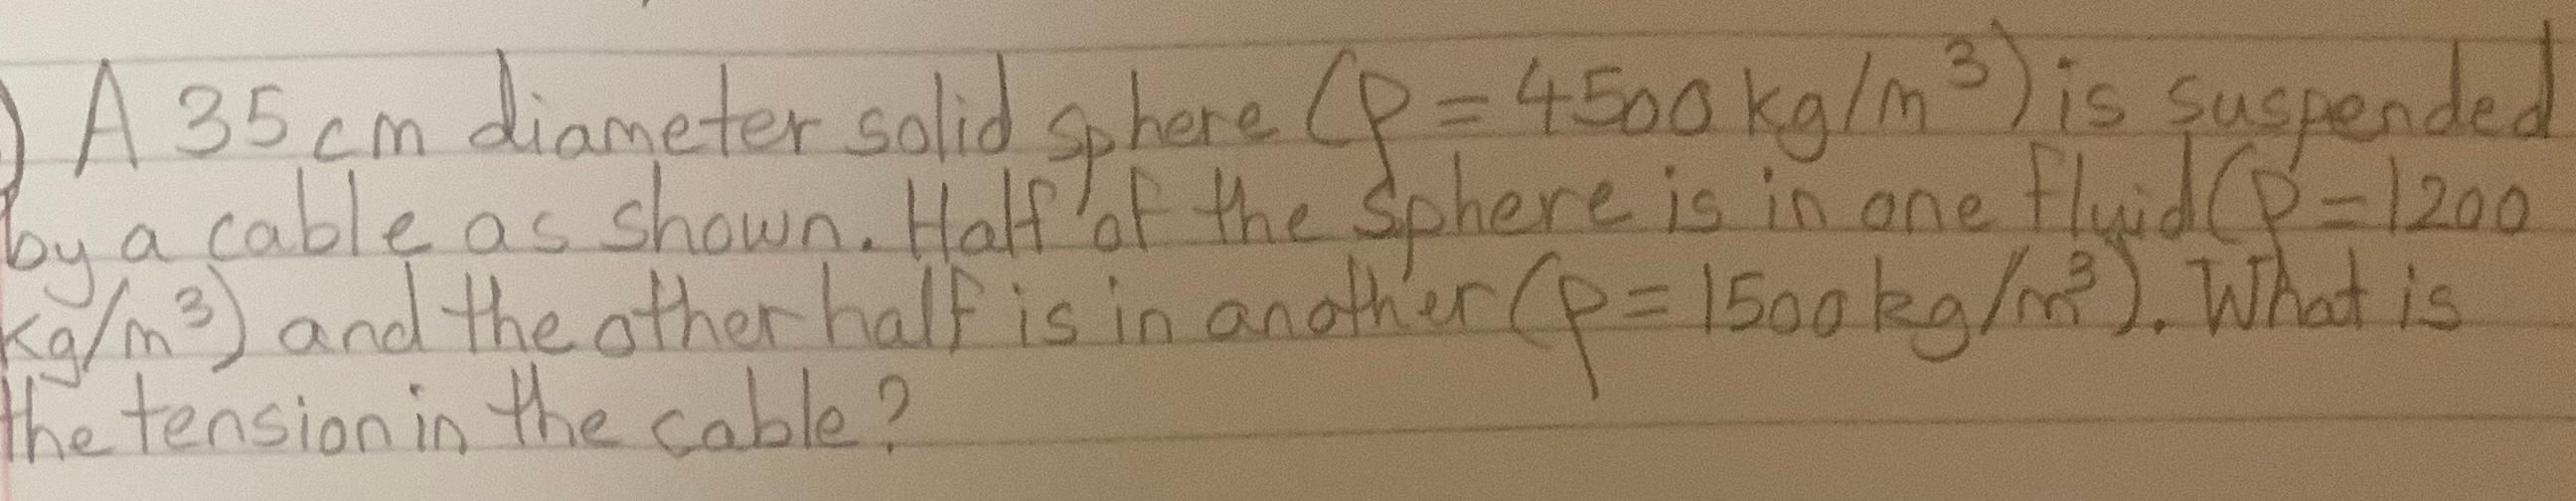 ) A 35 cm diameter solid sphere (ρ = 4500 kg/m³) is suspended
by a cable as shown. Half of the sphere is in one fluid (ρ = 1200
kg/m³) and the other half is in another (ρ = 1500 kg/m³). What is
the tension in the cable?